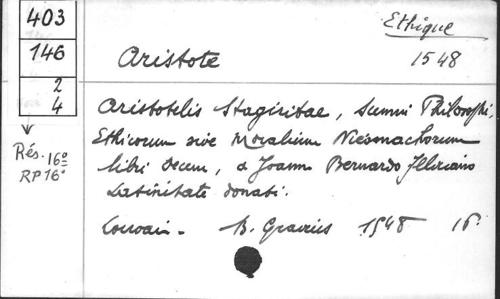 403
146
2
4
Rés. 16°
RP 16°
Ethique
Aristote
1548
Aristotelis Stagiritae, summi Philosophi,
Ethicorum sive Moralium Nicomachorum
libri decem, a Joann Bernardo Feliciano
Latinitate donati.
Louvain - B. Gravius 1548 16°.